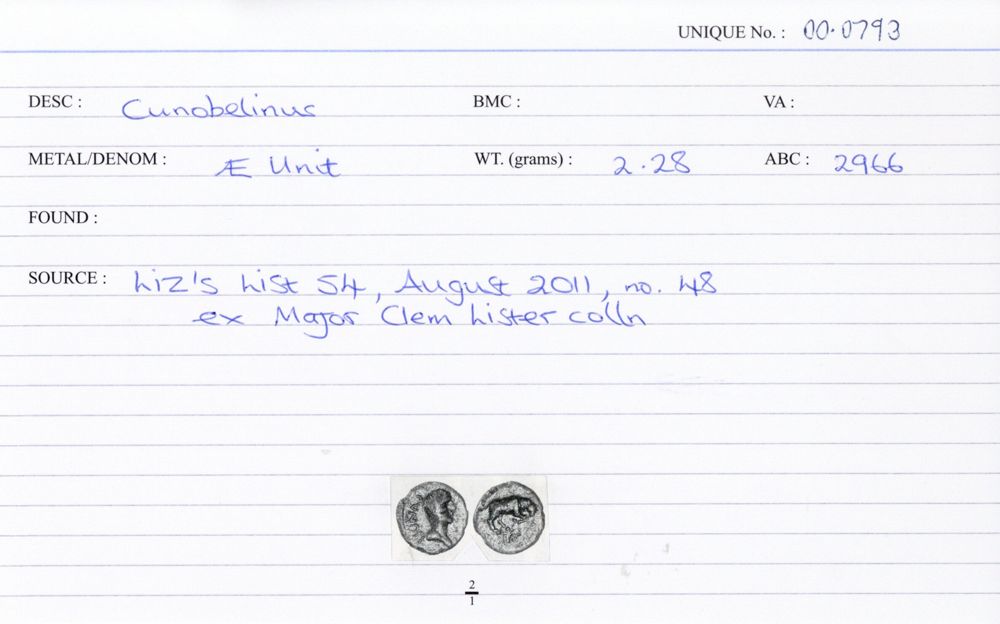 UNIQUE No. : 00.0793
DESC : Cunobelinus BMC : VA :
METAL/DENOM : Æ Unit WT. (grams) : 2.28 ABC : 2966
FOUND :
SOURCE : Liz's List 54, August 2011, no. 48
ex Major Clem Lister colln
2
1